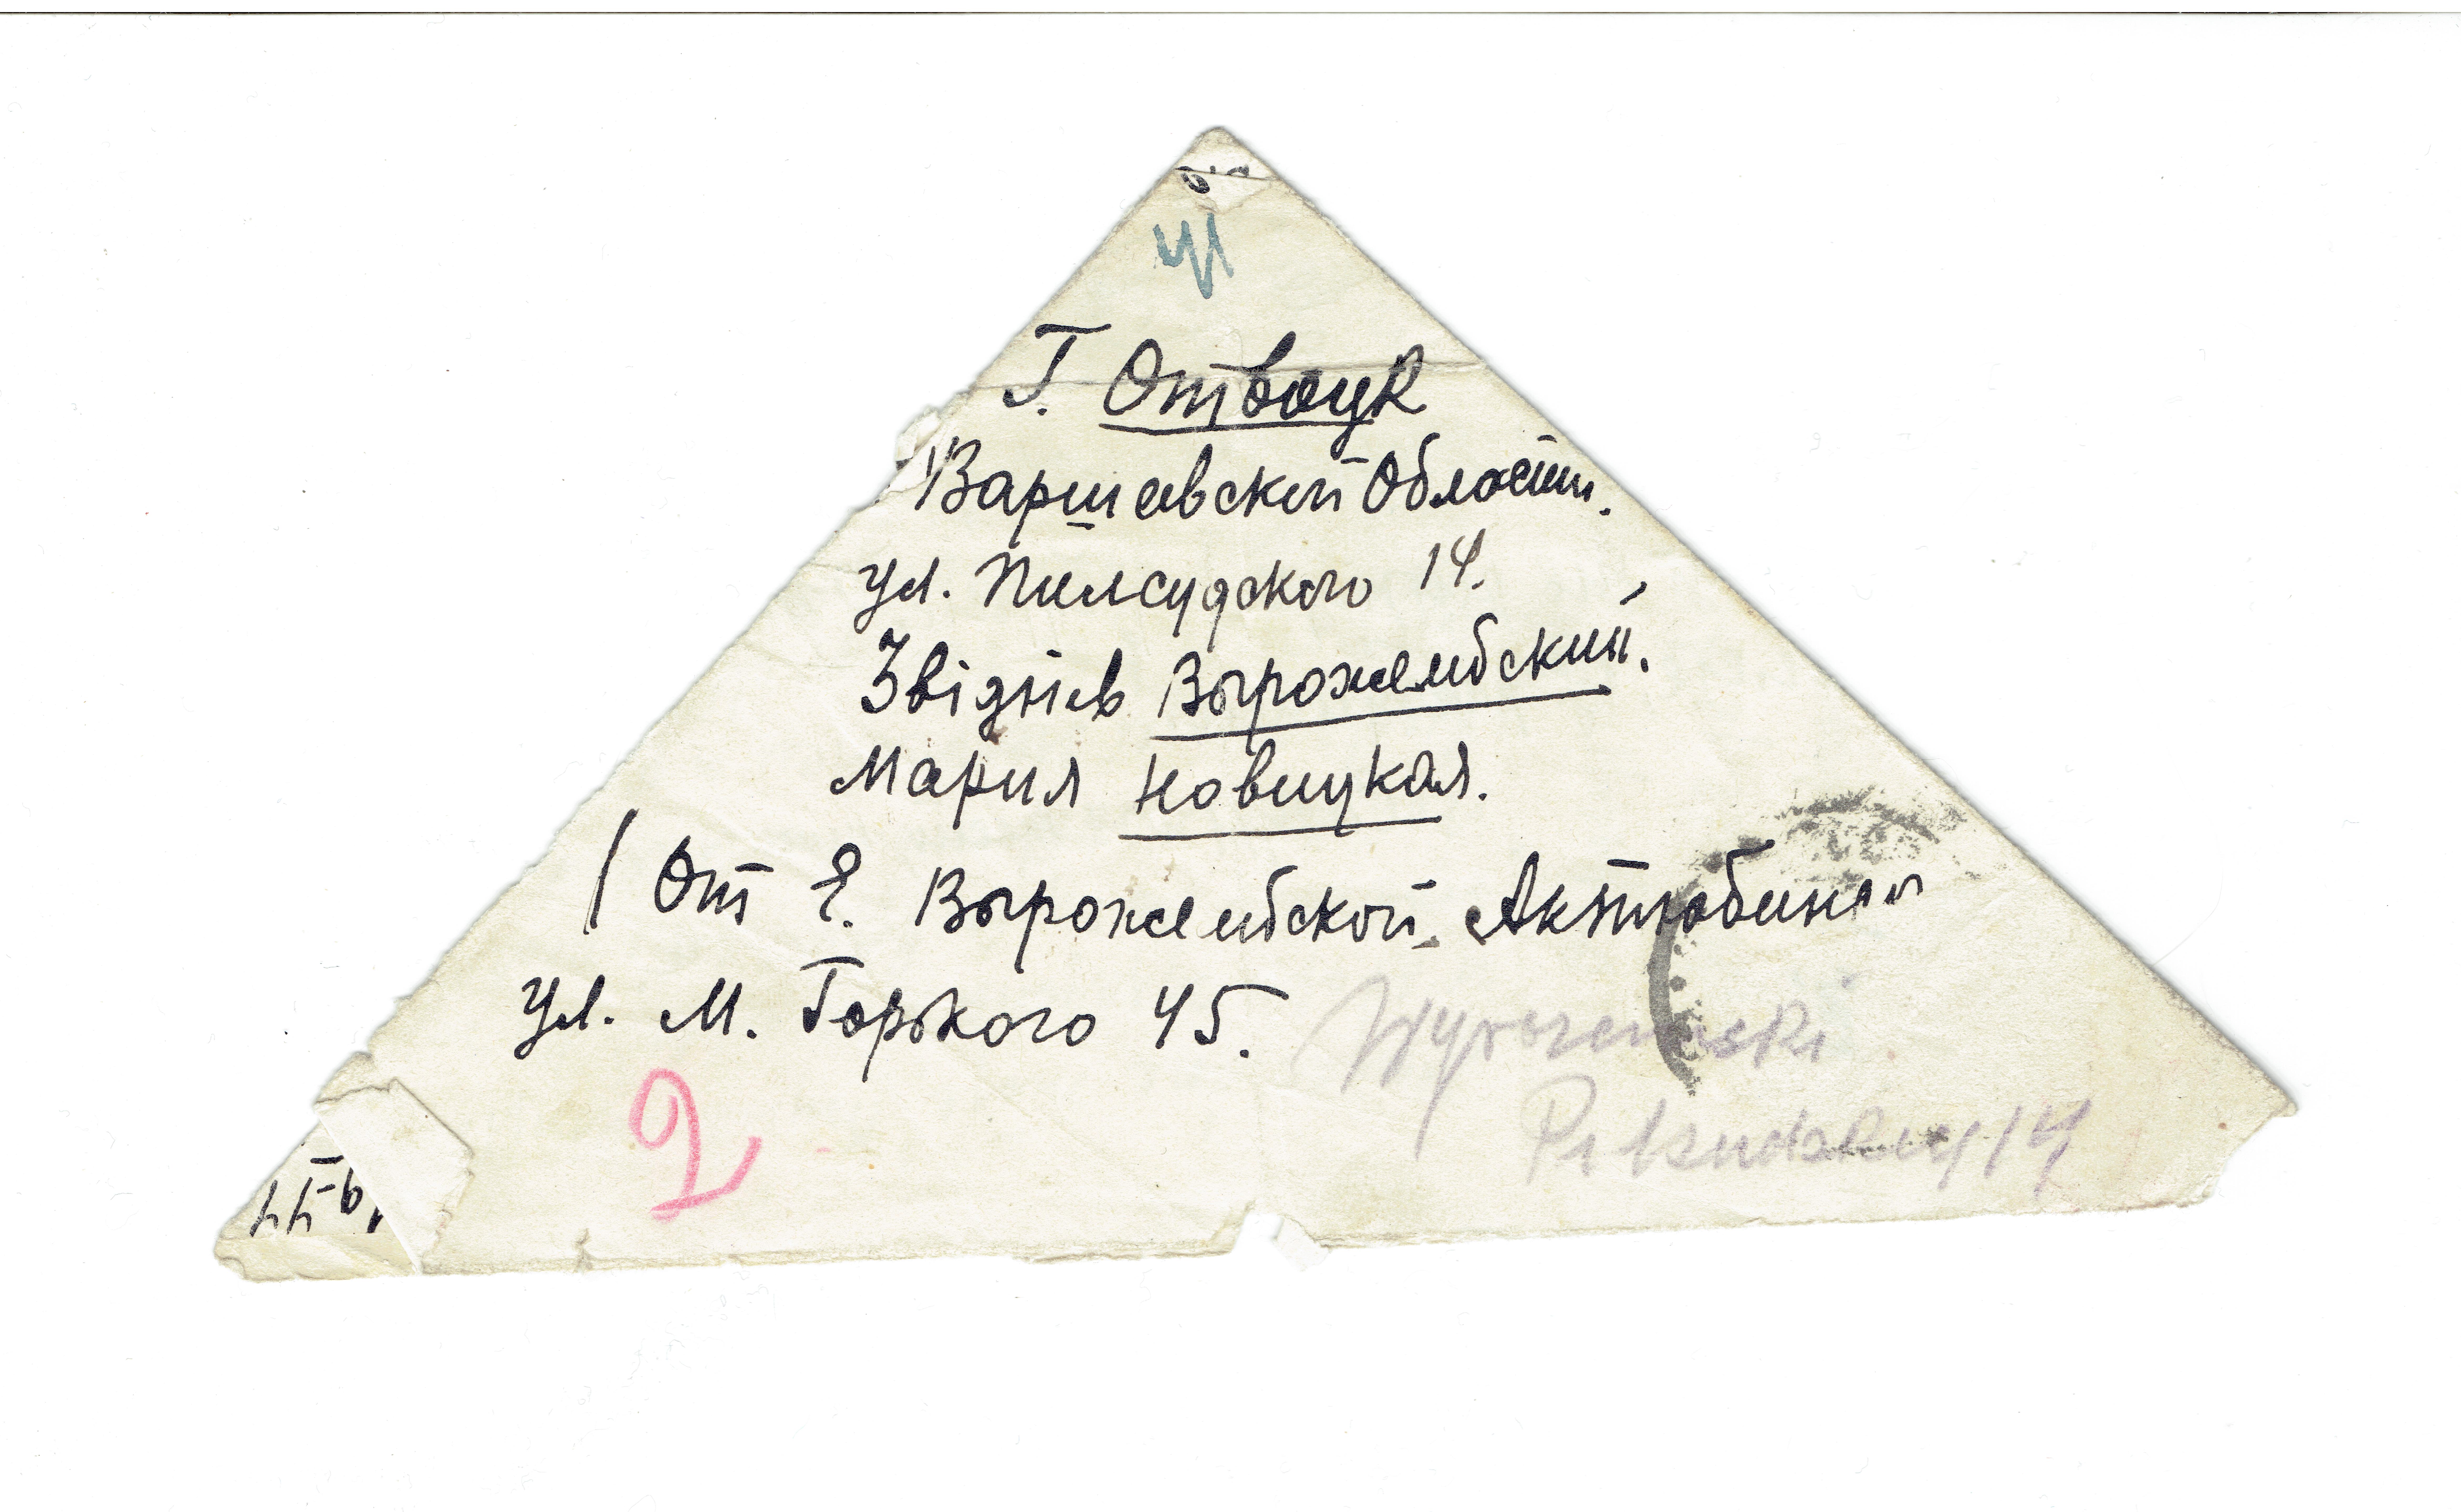 Г. Отвоцк
Варшавской Области.
ул. Пилсудского 14.
Звідніев Вырожембский.
Мария Новицкая.
( От Е. Вырожембской. Актюбинск
ул. М. Горького 45.
2
Wyrozemski
Piłsudskiego 14